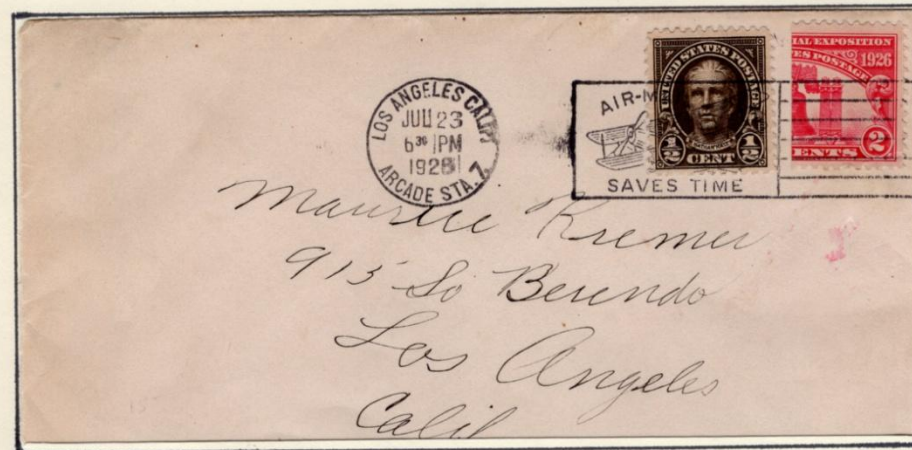 LOS ANGELES CALIF.
JUL 23
6 30 PM
1928
ARCADE STA. 7
AIR-M
SAVES TIME
UNITED STATES POSTAGE
1/2 CENT 1/2
IAL EXPOSITION
ES POSTAGE 1926
ENTS 2
Maurice Kremer
915 So Berendo
Los Angeles
Calif